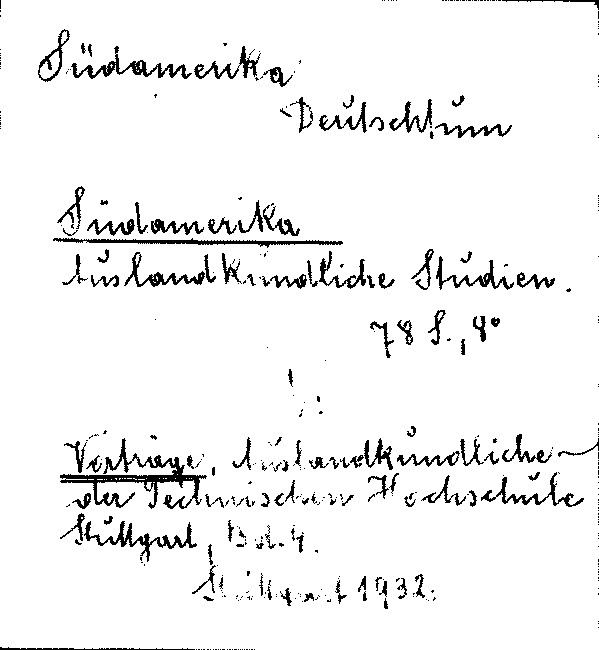 Südamerika
Deutschtum
Südamerika
Auslandkundliche Studien.
78 S., 8°
s:
Vorträge, Auslandkundliche –
der Technischen Hochschule
Stuttgart, Bd. 4.
Stuttgart 1932.